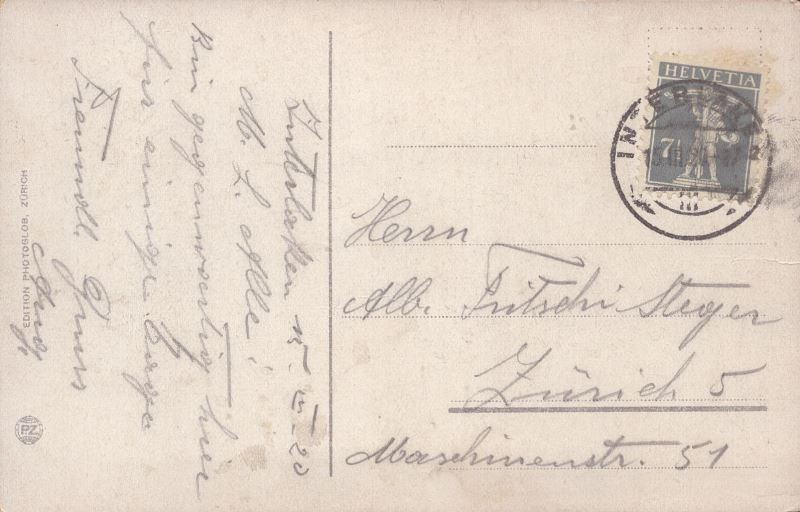 Interlaken 15. III. 20
M. L. Alle!
Bin gegenwärtig hier
für einige Tage
Freundl. Gruss
EDITION PHOTOGLOB, ZÜRICH
PZ
HELVETIA
7½
INTERLAKEN
Herrn
Alb. Fritschi Steger
Zürich 5
Maschinenstr. 51